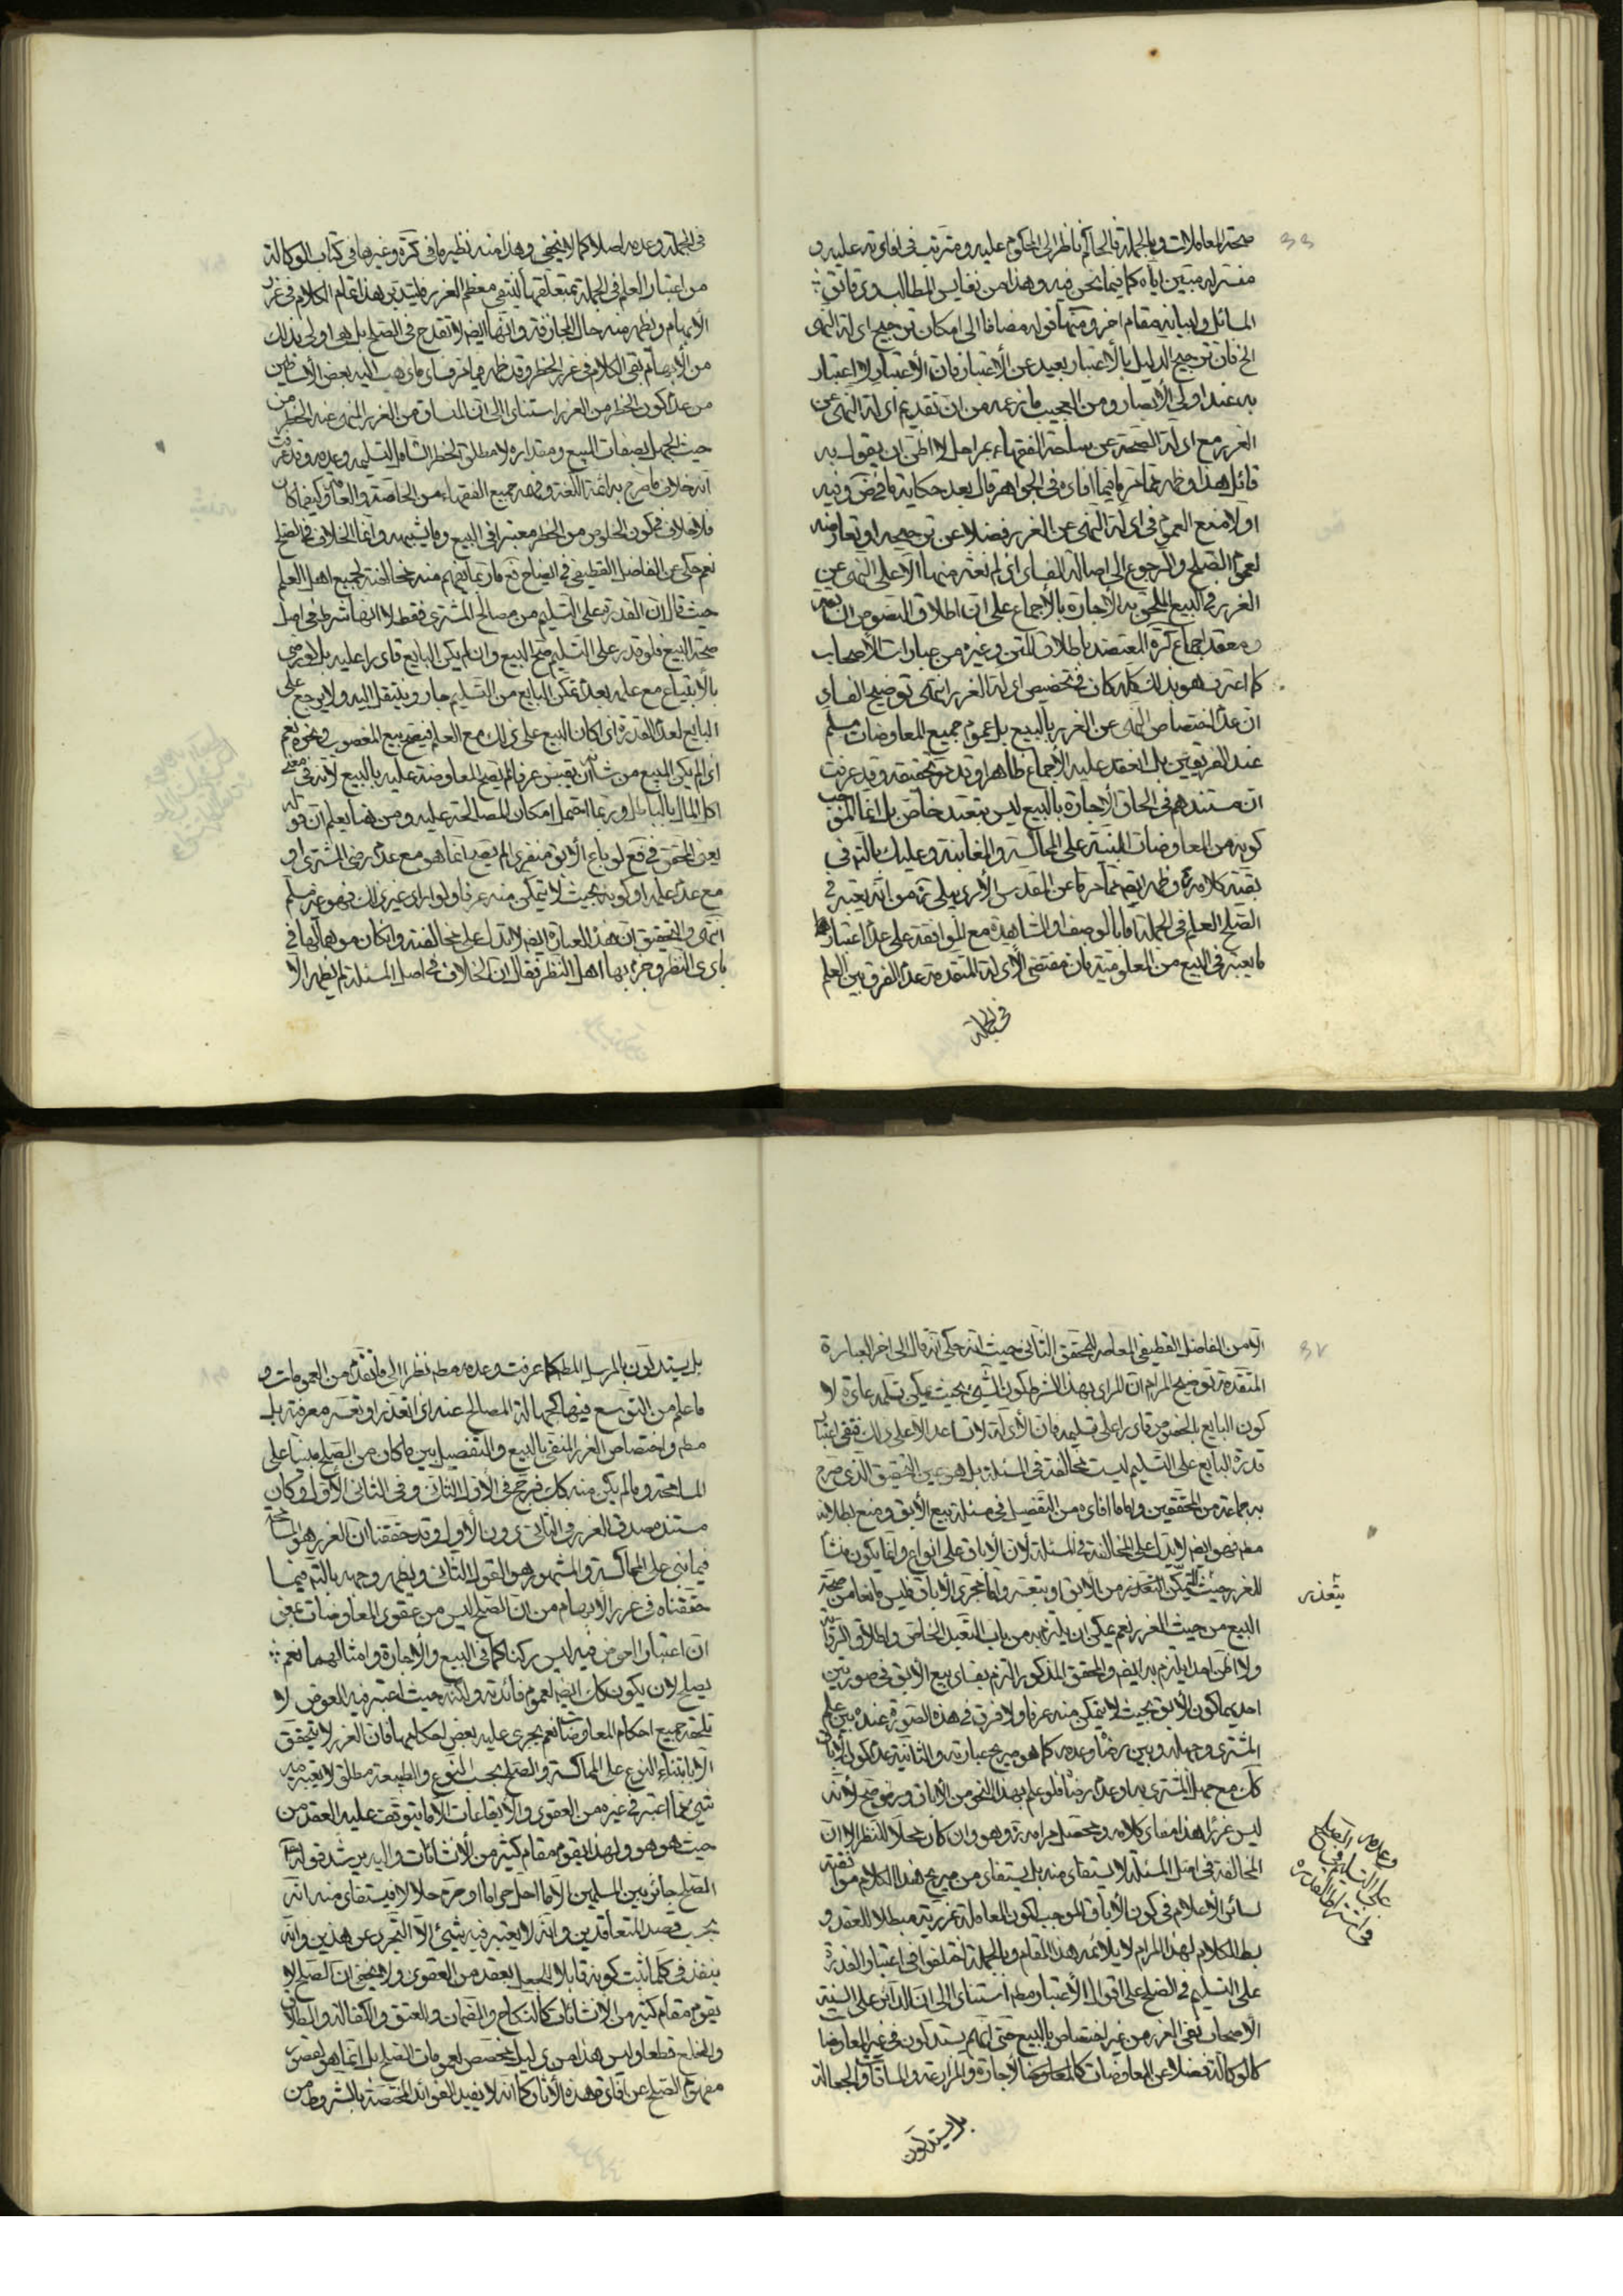 صحة المعاملات وبالجملة فالحاكم ناظر الى المحكوم عليه ومترتب في افادته عليه و
مفسر له مبين اياه كما فيما نحن فيه وهذا من نفايس المطالب ودقائق
المسائل ولبيانه مقام اخر ومنها قوله مضافا الى امكان ترجيح ادلة النهى
الخ فان ترجيح الدليل بالاعتبار بعيد عن الاعتبار فان الاعتبار لا اعتبار
به عند اولى الابصار ومن العجيب ما زعمه من ان تقديم ادلة النهى عن
الغرر مع ادلة الصحة عن ساحة الفقهاء بمراحل لا اظن ان يقول به
قائل هذا وظهر مما مر ما فيما افاده في الجواهر قال بعد حكاية ما في ض وفيه
اولا منع العموم في ادلة النهى عن الغرر فضلا عن ترجيحه او تعارضه
لعموم الصلح والرجوع الى اصالة الفساد اذ لم نعثر منها الا على النهى عن
الغرر في البيع الملحق به الاجارة بالاجماع على ان اطلاق النصوص السابقة
ومعقد اجماع كرة المعتضد باطلاق المتن وغيره من عبارات الاصحاب
كما اعترف هو بذلك كله كاف في تخصيص ادلة الغرر انتهى توضيح الفساد
ان عدم اختصاص النهى عن الغرر بالبيع بل عموم جميع المعاوضات مسلم
عند الفريقين بل انعقد عليه الاجماع ظاهرا وقد مر تحقيقه وقد عرفت
ان مستندهم في الحاق الاجارة بالبيع ليس بتعبد خاص بل انما الموجب
كونه من المعاوضات المبنية على المماكسة والمغابنة وعليك بالتم في
بقية كلامه وظهر ايضا مما مر ما عن المقدس الاردبيلى ره من انه يعتبر في
الصلح العلم في الجملة اما بالوصف او المشاهدة مع الموافقة على عدم اعتبار
ما يعتبر في البيع من المعلومية فان مقتضى الادلة المتقدمة عدم الفرق بين العلم
في الجملة
في الجملة وعدمه اصلا كما لا يخفى وهذا منه نظير ما في كرة وغيرها في كتاب الوكالة
من اعتبار العلم في الجملة بمتعلقها لينتفى معظم الغرر فليتدبر هذا تمام الكلام في غرر
الابهام ويظهر منه حال المجازفة وانها ايضا لا تقدح في الصلح بل هى اولى بذلك
من الابهام بقى الكلام في غرر الخطر وقد ظهر مما مر فساد ما ذهب اليه بعض الاساطين
من عدم كون الخطر من الغرر استنادا الى ان المنساق من الغرر المنهى عنه الخطر من
حيث الجهل بصفات المبيع ومقداره لا مطلق الخطر الشامل لتسليمه وعدمه وقد عرفت
انه خلاف ما صرح به ائمة اللغة وفهمه جميع الفقهاء من الخاصة والعامة وكيف كان
فلا خلاف في كون الخلوص من الخطر معتبرا في البيع وما يشبهه وانما الخلاف في الصلح
نعم حكى عن الفاضل القطيفى في ايضاح فع ما ربما يفهم منه مخالفته لجميع اهل العلم
حيث قال ان القدرة على التسليم من مصالح المشترى فقط لا انها شرط في اصل
صحة البيع فلو قدر على التسليم صح البيع وان لم يكن البايع قادرا عليه بل لو رضى
بالابتياع مع علمه بعدم تمكن البايع من التسليم جاز وينتقل اليه ولا يرجع على
البايع لعدم القدرة اذا كان البيع على ذلك مع العلم فيصح بيع المغصوب ونحوه نعم
اذا لم يكن المبيع من شانه ان يقبض عرفا لم يصح المعاوضة عليه بالبيع لانه في معنى
اكل المال بالباطل وربما احتمل امكان المصالحة عليه ومن هنا يعلم ان قوله
يعنى المحقق في فع لو باع الابق منفردا لم يصح انما هو مع عدم رضى المشترى او
مع عدم علمه او كونه بحيث لا يتمكن منه عرفا ولو اراد غير ذلك فهو غير مسلم
انتهى والتحقيق ان هذه العبارة ايضا لا تدل على مخالفته وان كان موهما لها في
بادى النظر وجزم بها اهل النظر فقال ان الخلاف في اصل المسئلة لم يظهر الا
الا من الفاضل القطيفى المعاصر للمحقق الثانى حيث انه حكى انه قال الى اخر العبارة
المتقدمة توضيح المرام ان المراد بهذا الشرط كون الشئ بحيث يمكن تسلمه عادة لا
كون البايع بالخصوص قادرا على تسليمه فان الادلة لا تساعد الا على ذلك فنفى اعتبار
قدرة البايع على التسليم ليست مخالفة في المسئلة بل هو عين التحقيق الذى صرح
به جماعة من المحققين واما ما افاده من التفصيل في مسئلة بيع الابق ومنع بطلانه
مطم فهو ايضا لا يدل على المخالفة في المسئلة لان الاباق على انواع وانما يكون منشأ
للغرر حيث التمكن المتعذر من الابق او يتعسر واما مجرد الاباق فليس مانعا من صحة
البيع من حيث الغرر نعم يمكن ان يلتزم به من باب التعبد الخاص واطلاق الرواية
ولا اظن احدا يلتزم به ايضا والمحقق المذكور التزم بفساد بيع الابق في صورتين
احديهما كون الابق بحيث لا يتمكن منه عرفا ولا فرق في هذه الصورة عنده بين علم
المشترى وجهله وبين رضاه وعدمه كما هو صريح عبارته والثانية عدم كون الاباق
كك مع جهل المشترى به او عدم رضاه فلو علم بهذا النحو من الاباق ورضى صح لانه
ليس غررا هذا مفاد كلامه ومحصل مرامه وهو وان كان محلا للنظر الا ان
المخالفة في اصل المسئلة لا يستفاد منه بل يستفاد من صريح هذا الكلام موافقته
لسائر الاعلام في كون الاباق الموجب لكون المعاملة غررية مبطلا للعقد و
بسط الكلام لهذا المرام لا يلائمه هذا المقام وبالجملة اختلفوا في اعتبار القدرة
على التسليم في الصلح على اقوال الاعتبار مطم استنادا الى ان الدائر على السنة
الاصحاب نفى الغرر من غير اختصاص بالبيع حتى انهم يستدلون في غير المعاوضات
كالوكالة فضلا عن المعاوضات كالاجارة والمزارعة والمساقاة والجعالة
بتعذر
وعدمه في الصلح
على التسليم
في اشتراط القدرة
بل يستدلون
بل يستدلون بالمرسل المطم كما عرفت وعدمه مطم نظرا الى ما تقدم من العمومات و
ما علم من التوسع فيها كجهالة المصالح عنه اذا تعذر او تعسر معرفته بل
مطم واختصاص الغرر المنفى بالبيع والتفصيل بين ما كان من الصلح مبنيا على
المسامحة وما لم يكن منه كك فرجح في الاول الثانى وفي الثانى الاول وكان
مستنده صدق الغرر في الثانى دون الاول وقد حققنا ان الغرر هو المسامحة
فيما ينبى على المماكسة والمشهور هو القول الثانى ويظهر وجهه بالتم فيما
حققناه في غرر الابهام من ان الصلح ليس من عقود المعاوضات بمعنى
ان اعتبار العوض فيه ليس ركنا كما في البيع والاجارة وامثالهما نعم
يصلح لان يكون كك ايضا لعموم فائدته ولكنه حيث اعتبر فيه العوض لا
تلحقه جميع احكام المعاوضات نعم يجرى عليه بعض احكامها فان الغرر لا يتحقق
الا بابتناء النوع على المماكسة والصلح بحسب النوع والطبيعة مطلق لا يعتبر فيه
شئ مما اعتبر في غيره من العقود والايقاعات الا ما يتوقف عليه العقد من
حيث هو هو ولهذا يقوم مقام كثير من الانشائات واليه يرشد قوله
الصلح جائز بين المسلمين الا ما احل حراما او حرم حلالا فيستفاد منه انه
بحسب قصد المتعاقدين وانه لا يعتبر فيه شئ الا التجرد عن هذين وانه
ينفذ في كلما ثبت كونه قابلا للجعل بعقد من العقود ولا يخفى ان الصلح لا
يقوم مقام كثير من الانشائات كالنكاح والضمان والعتق والكفالة والطلاق
والخلع قطعا وليس هذا من دليل مخصص لعمومات الصلح بل انما هو لقصور
مفهوم الصلح عن افادة هذه الاثار كما انه لا يفيد الفوائد المختصة بالشروط من